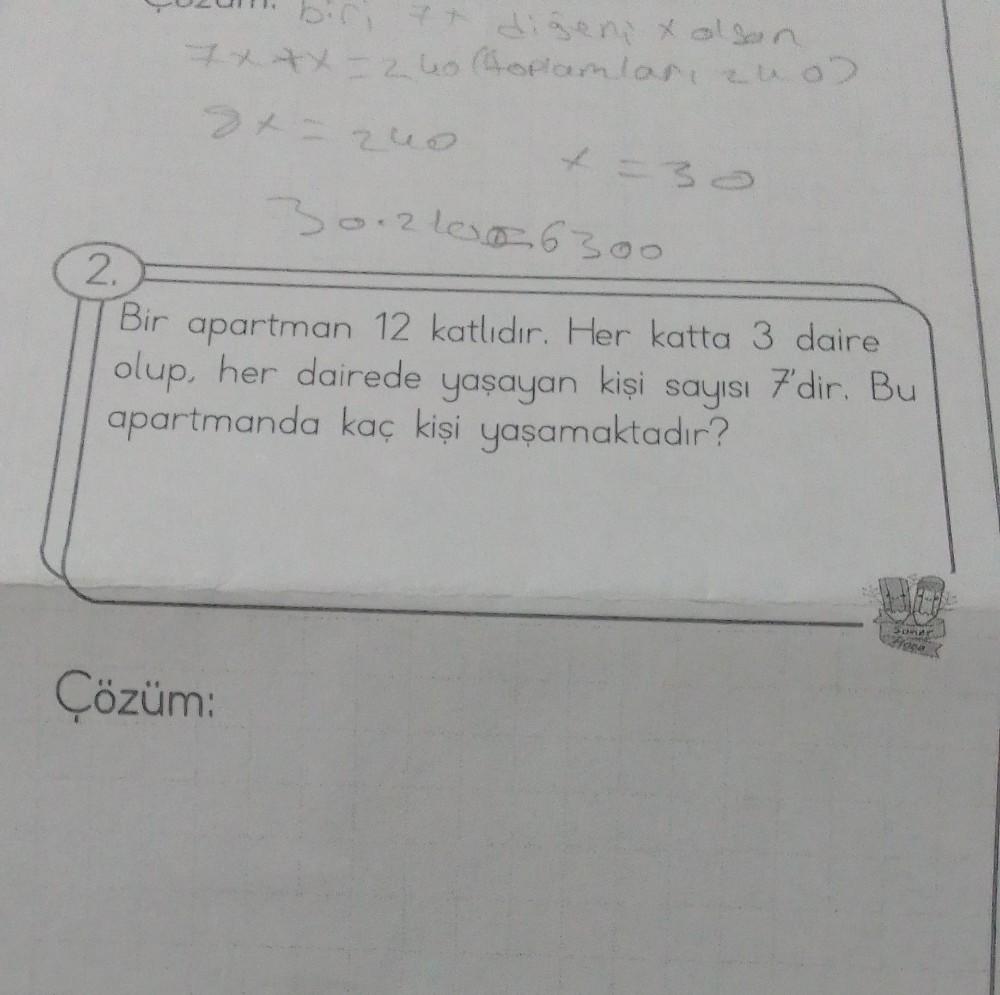 Çözüm: biri 7x diğeri x olsun
7x+x=240 (toplamları 240)
8x=240 x=30
30.210=6300
2.
Bir apartman 12 katlıdır. Her katta 3 daire
olup, her dairede yaşayan kişi sayısı 7'dir. Bu
apartmanda kaç kişi yaşamaktadır?
Soner
Hoca
Çözüm: